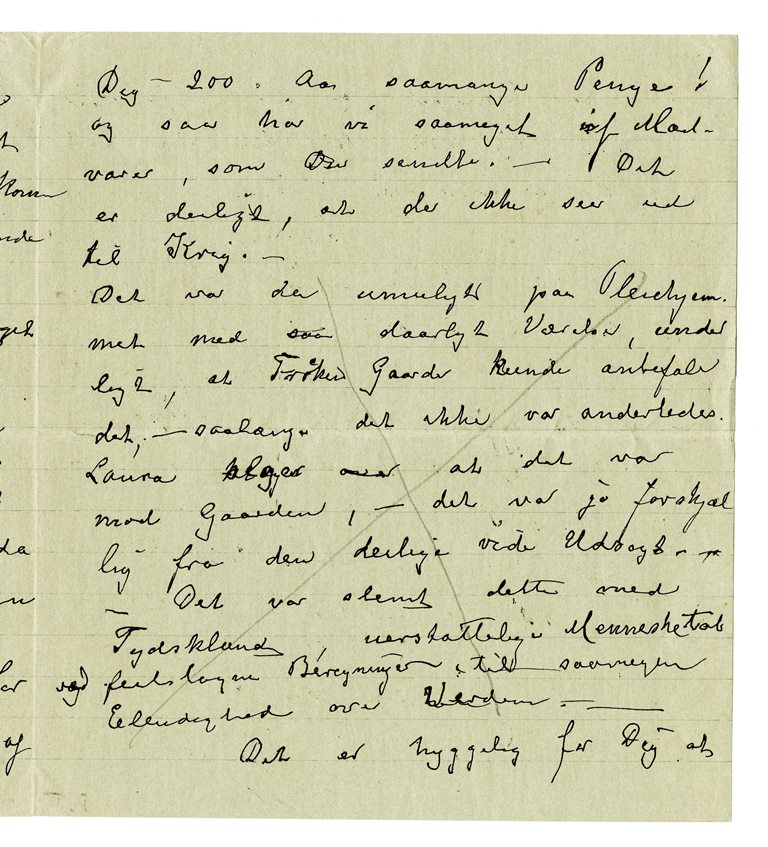 Dig – 200. Aa saamange Penge!
og saa har vi saameget af Mad-
varer, som Du sendte. – Det
er deiligt, at der ikke seer ud
til Krig. –
Det var da umuligt paa Pleiehjem-
met med saa daarligt Værelse, under
ligt, at Frøken Gaarde kunde anbefale
det, – saalænge det ikke var anderledes.
Laura at det var
mod Gaarden, – det var jo forskjæl
lig fra den deilige vide Udsigt. –
Det var slemt dette med
Tydsklands uerstattelige Mennesketab
ved feilslagne Beregninger, til saamegen
Elendighed over Verden. –
Det er hyggelig for Dig at